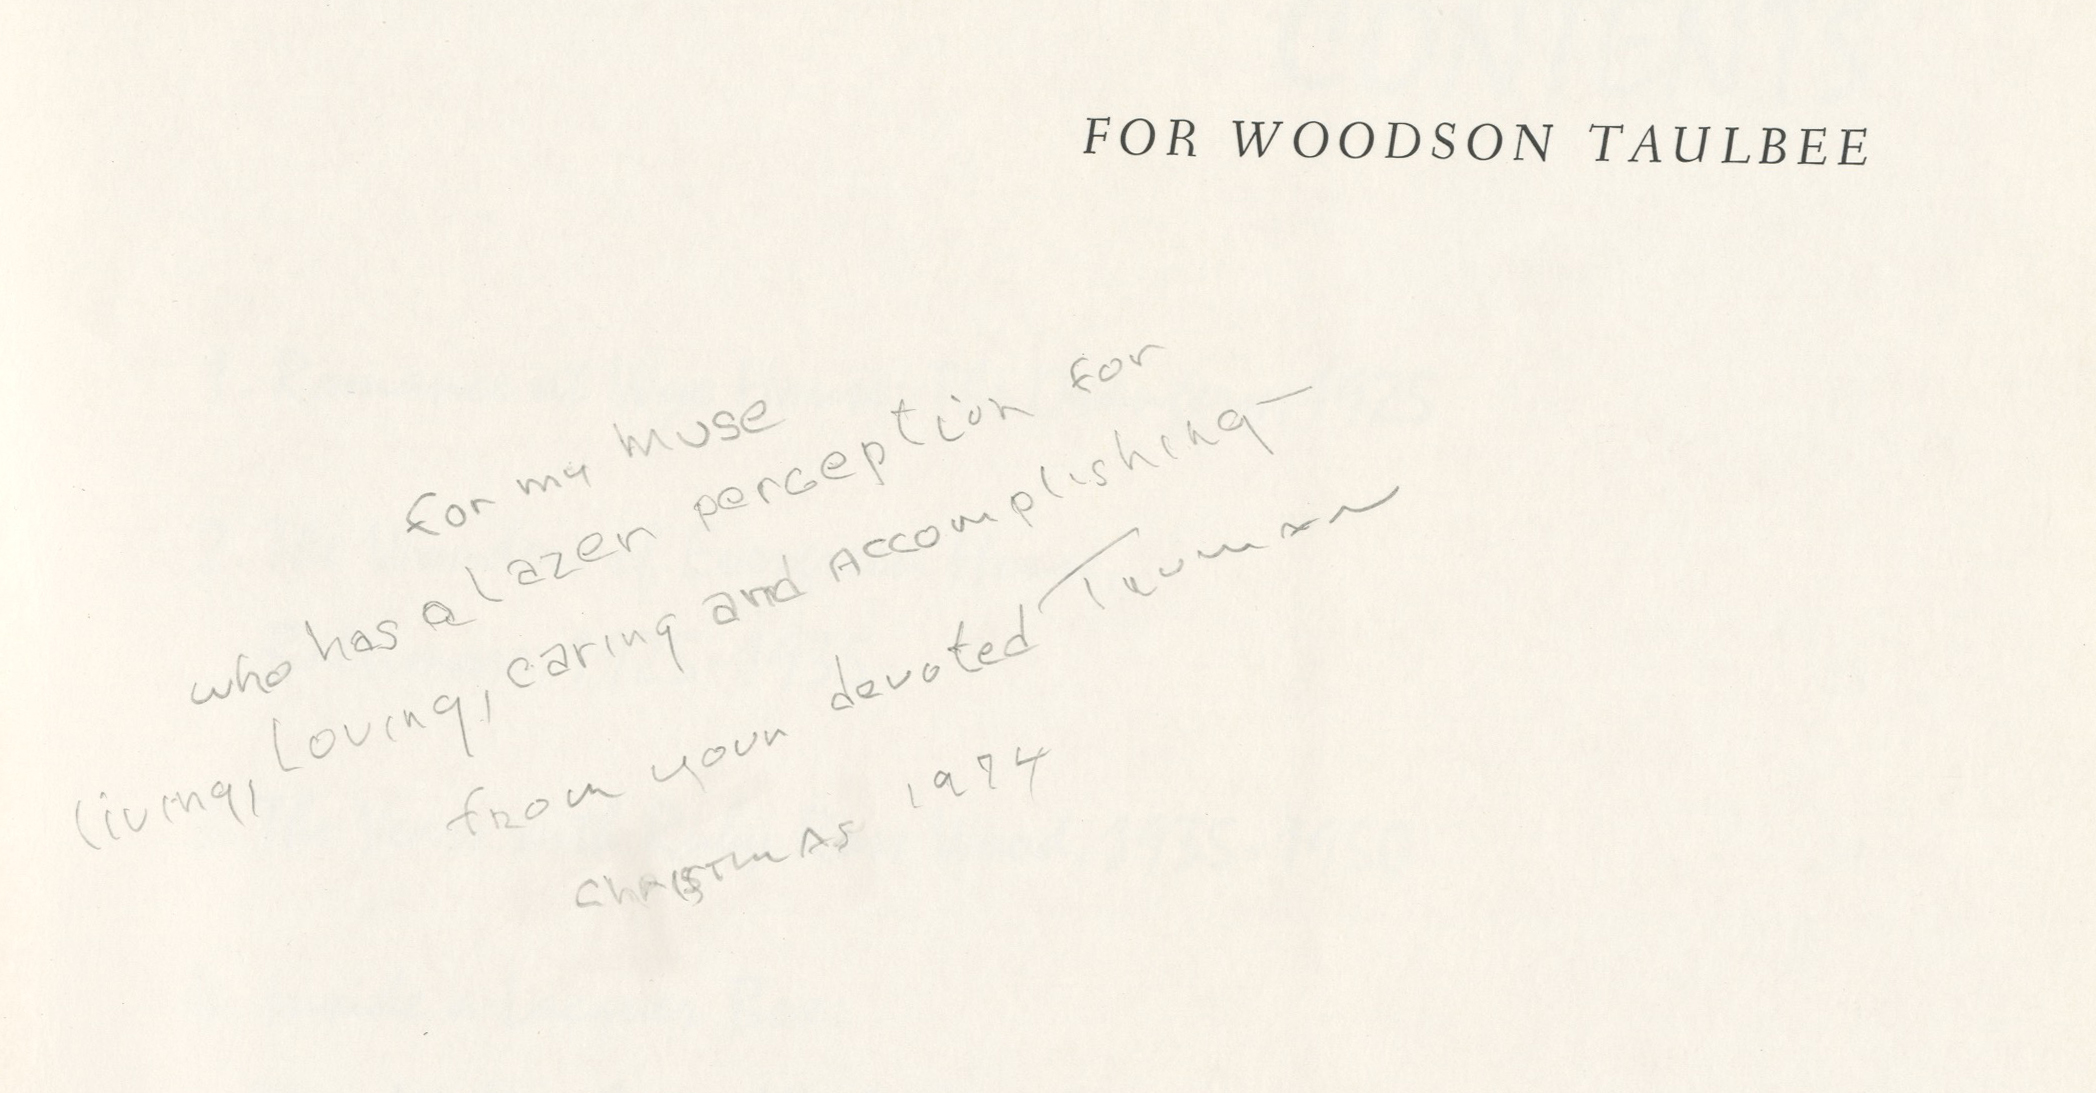 FOR WOODSON TAULBEE
for my muse
who has a lazer perception for
living, Loving, caring and Accomplishing—
from your devoted Truman
Christmas 1974